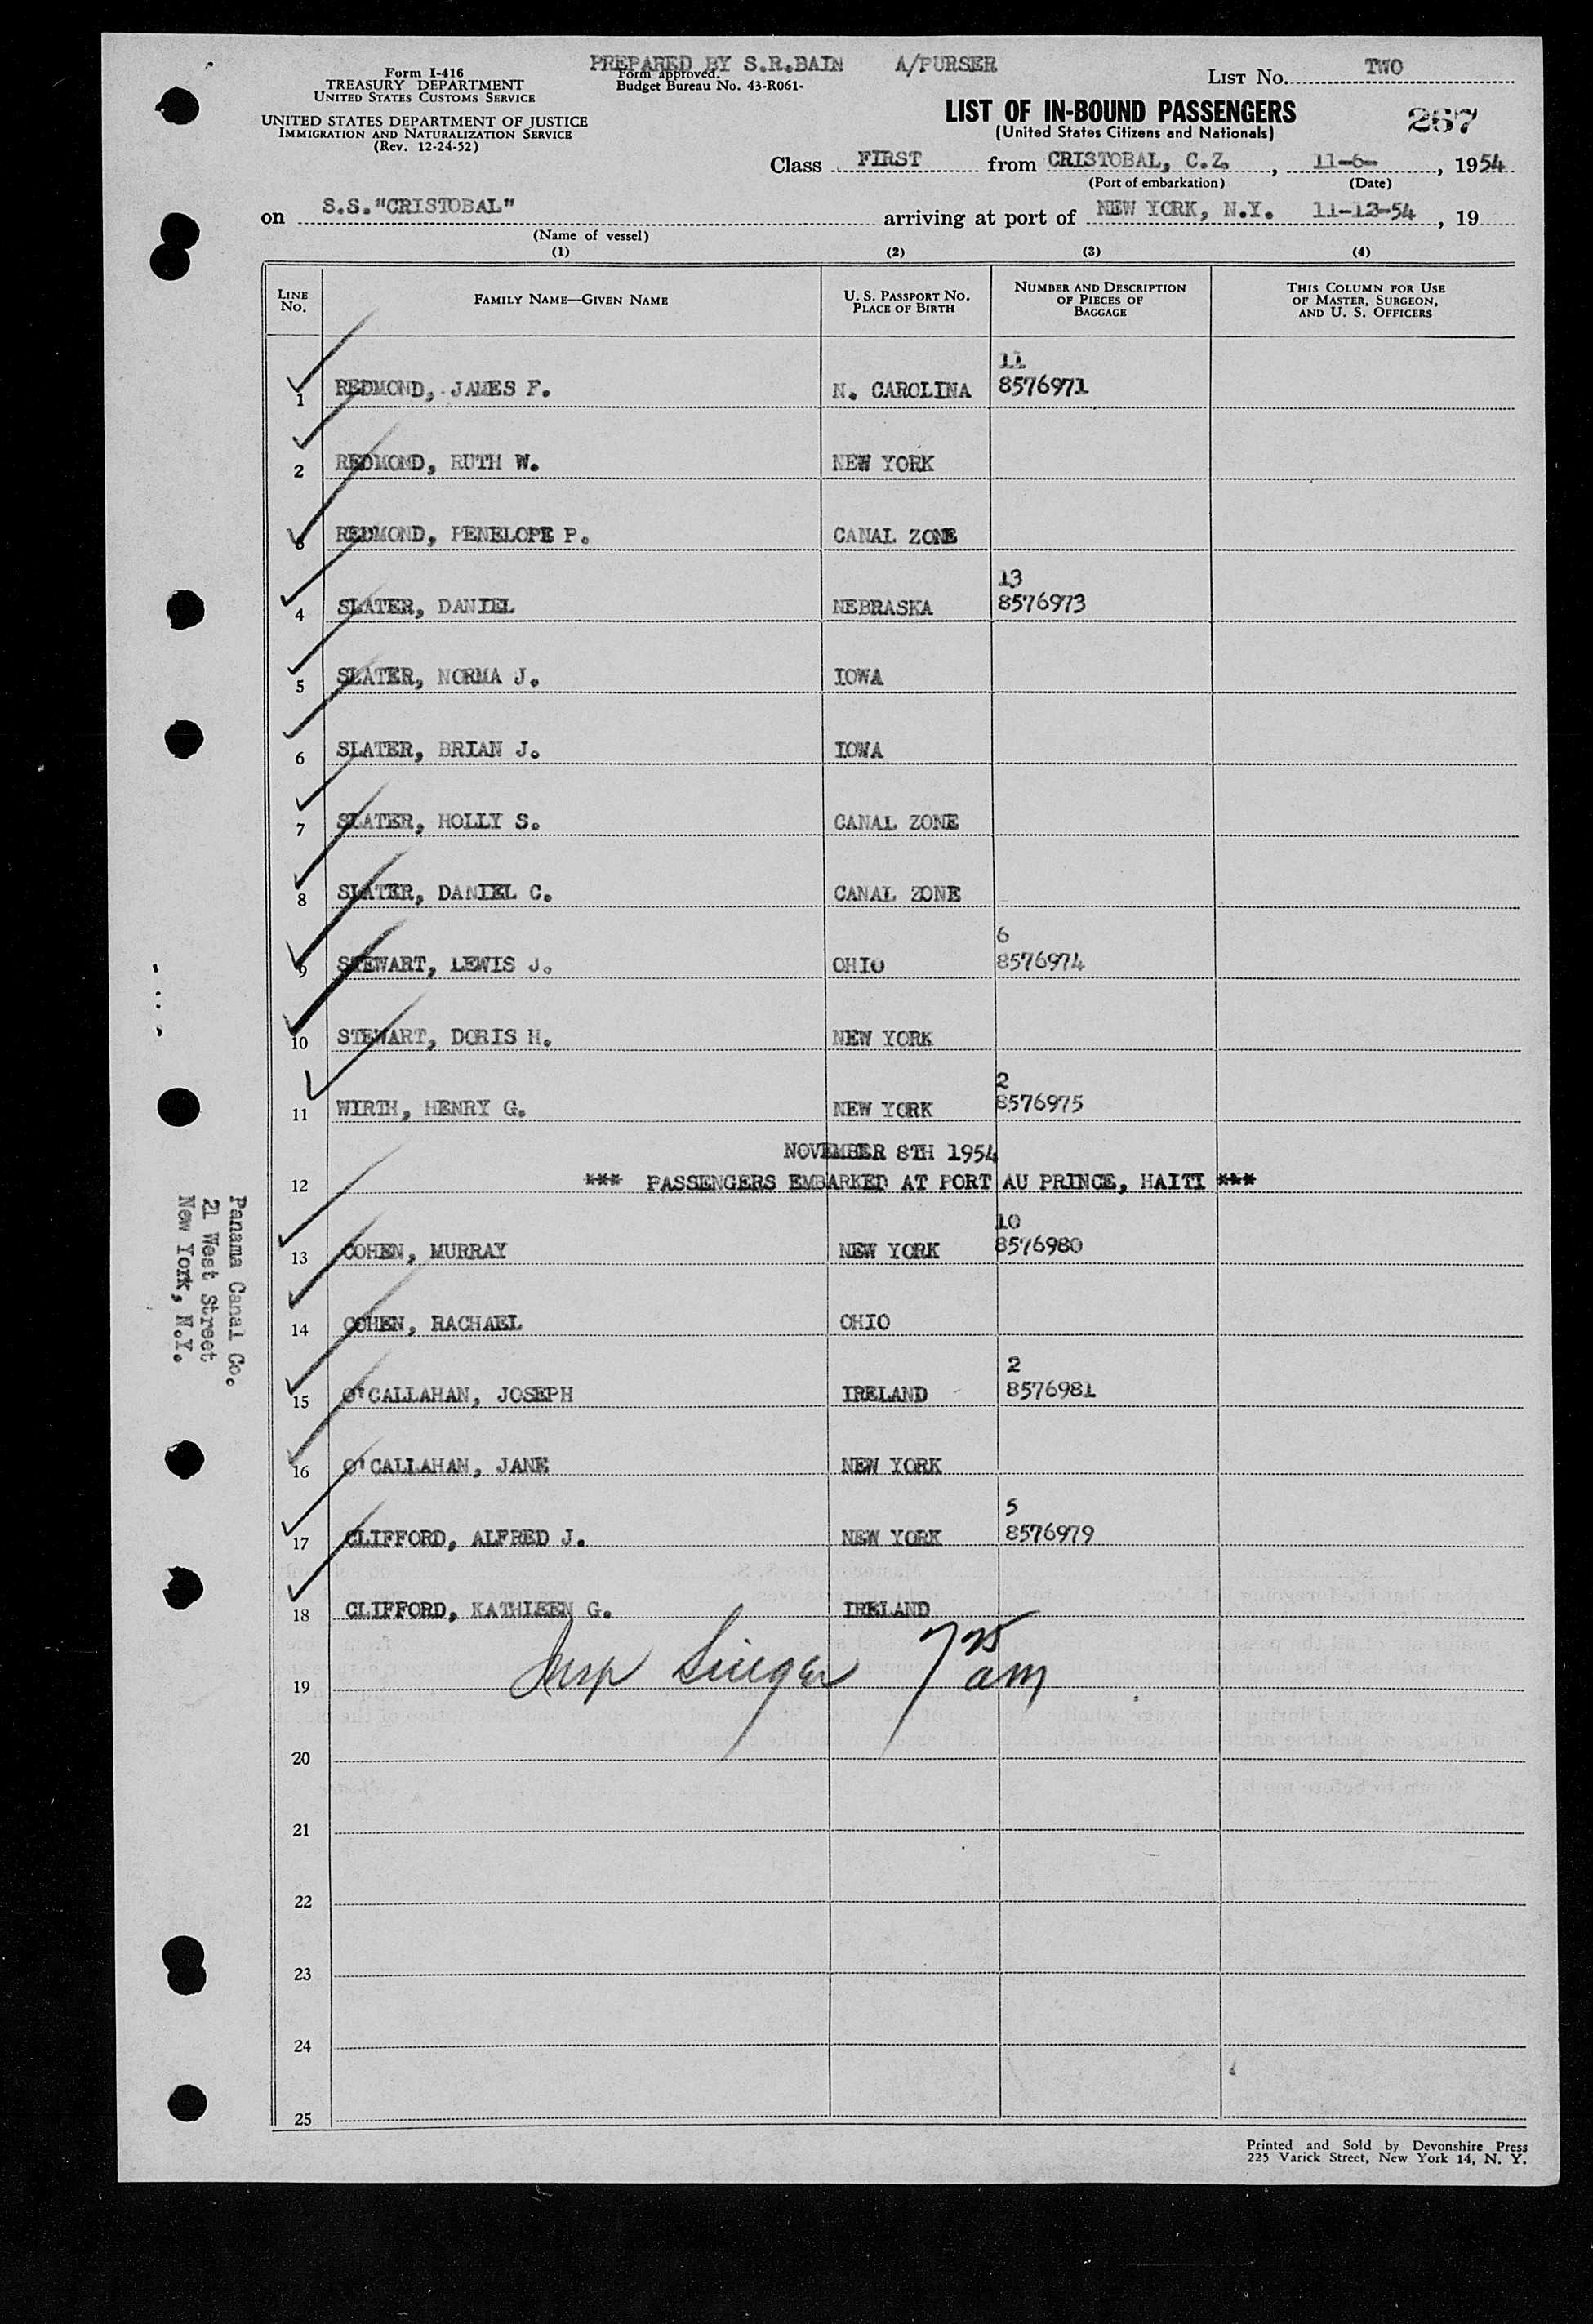 PREPARED BY S.R.BAIN A/PURSER
Form I-416
TREASURY DEPARTMENT
UNITED STATES CUSTOMS SERVICE
UNITED STATES DEPARTMENT OF JUSTICE
IMMIGRATION AND NATURALIZATION SERVICE
(Rev. 12-24-52)
Form approved.
Budget Bureau No. 43-R061-
LIST No. TWO
LIST OF IN-BOUND PASSENGERS
(United States Citizens and Nationals)
267
Class FIRST from CRISTOBAL, C.Z. , 11-6- , 1954
(Port of embarkation) (Date)
on S.S."CRISTOBAL" arriving at port of NEW YORK, N.Y. 11-12-54 , 19
(Name of vessel)
(1) (2) (3) (4)
LINE NO. FAMILY NAME—GIVEN NAME U. S. PASSPORT NO. PLACE OF BIRTH NUMBER AND DESCRIPTION OF PIECES OF BAGGAGE THIS COLUMN FOR USE OF MASTER, SURGEON, AND U. S. OFFICERS
11
1 REDMOND, JAMES F. N. CAROLINA 8576971
2 REDMOND, RUTH W. NEW YORK
3 REDMOND, PENELOPE P. CANAL ZONE
13
4 SLATER, DANIEL NEBRASKA 8576973
5 SLATER, NORMA J. IOWA
6 SLATER, BRIAN J. IOWA
7 SLATER, HOLLY S. CANAL ZONE
8 SLATER, DANIEL C. CANAL ZONE
6
9 STEWART, LEWIS J. OHIO 8576974
10 STEWART, DORIS H. NEW YORK
2
11 WIRTH, HENRY G. NEW YORK 8576975
NOVEMBER 8TH 1954
12 *** PASSENGERS EMBARKED AT PORT AU PRINCE, HAITI ***
10
13 COHEN, MURRAY NEW YORK 8576980
14 COHEN, RACHAEL OHIO
2
15 O'CALLAHAN, JOSEPH IRELAND 8576981
16 O'CALLAHAN, JANE NEW YORK
5
17 CLIFFORD, ALFRED J. NEW YORK 8576979
18 CLIFFORD, KATHLEEN G. IRELAND
19 Insp Singer 7 25 am
20
21
22
23
24
25
Panama Canal Co.
21 West Street
New York, N.Y.
Printed and Sold by Devonshire Press
225 Varick Street, New York 14, N. Y.